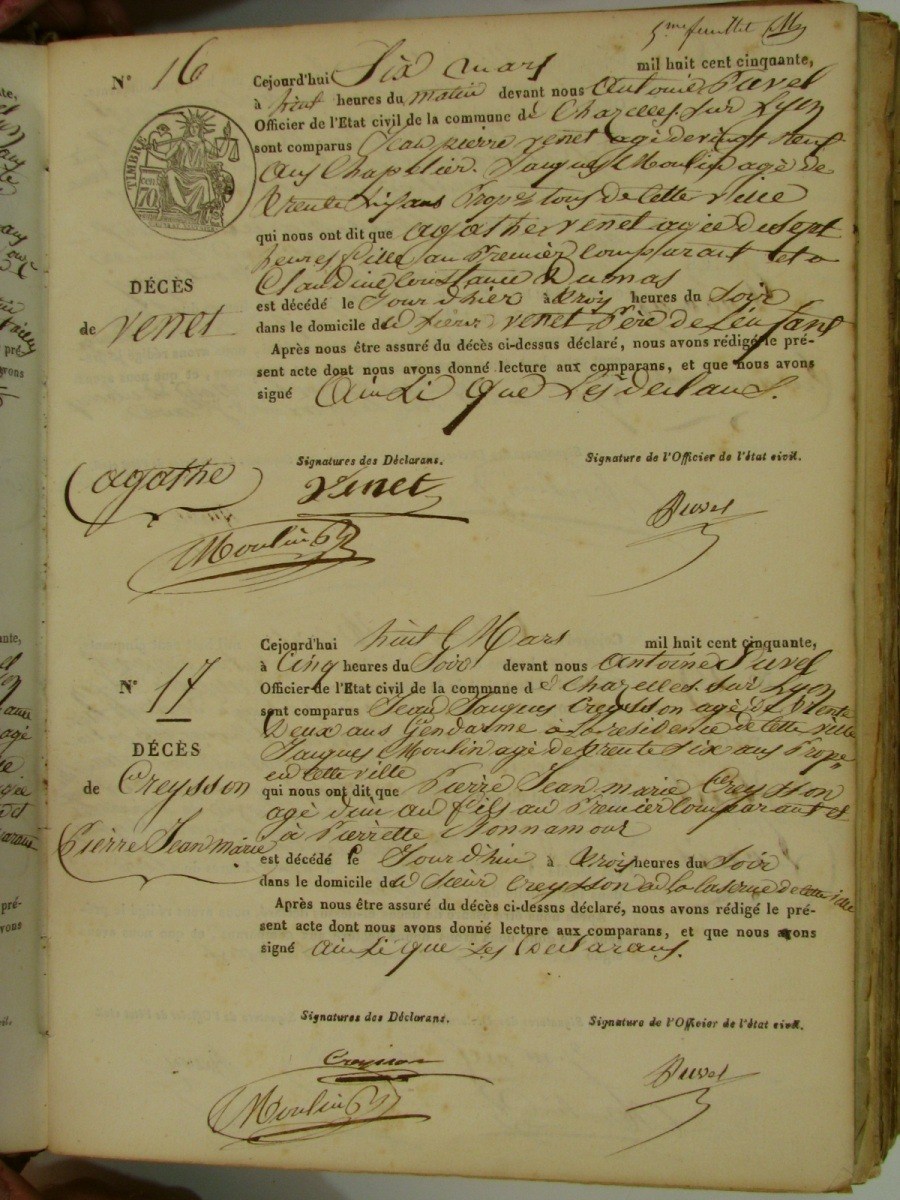 5me feuillet
N° 16
Cejourd'hui Six mars mil huit cent cinquante,
à huit heures du matin devant nous Antoine Duvel
Officier de l'Etat civil de la commune de Chazelles sur Lyon
sont comparus Jean pierre venet agé de vingt neuf
ans Chapellier. Jacques Moulin agé de
trente six ans Propre tous de Cette ville
qui nous ont dit que agathe venet agée de sept
heures fille au Premier Comparant et a
Claudine Constance Dumas
est décédé le Jour d'hier à trois heures du Soir
dans le domicile du d sieur venet Père de l'enfant
Après nous être assuré du décès ci-dessus déclaré, nous avons rédigé le pré-
sent acte dont nous avons donné lecture aux comparans, et que nous avons
signé Ainsi que Les declans.
TIMBRE
70
DÉCÈS
de venet
agathe
Signatures des Déclarans.
Signature de l'Officier de l'état civil.
Venet
Duvel
Moulin
N° 17
Cejourd'hui huit Mars mil huit cent cinquante,
à Cinq heures du Soir devant nous Antoine Duvel
Officier de l'Etat civil de la commune de Chazelles sur Lyon
sont comparus Jean Jacques Creysson agé de trente
Deux ans Gendarme à la residence de cette ville
Jacques Moulin agé de trente six ans Propre
en Cette ville
qui nous ont dit que Pierre Jean marie Creysson
agé d'un an fils au Premier Comparant et
à Pierrette Bonnamour
est décédé le Jour d'hui à trois heures du Soir
dans le domicile du d Sieur Creysson à la Caserne de cette ville
Après nous être assuré du décès ci-dessus déclaré, nous avons rédigé le pré-
sent acte dont nous avons donné lecture aux comparans, et que nous avons
signé ainsi que Les Declarans.
DÉCÈS
de Creysson
Pierre Jean marie
Signatures des Déclarans.
Signature de l'Officier de l'état civil.
Creysson
Duvel
Moulin